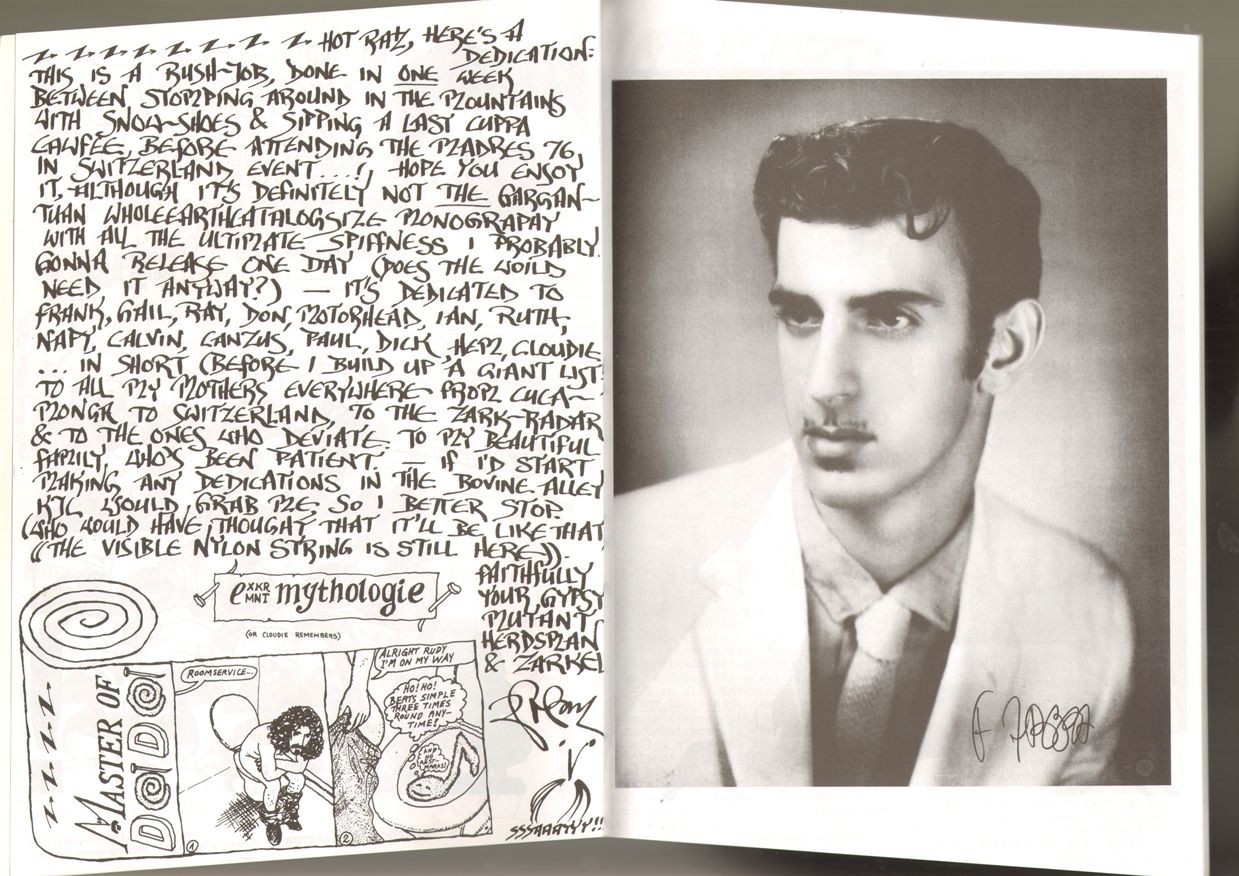 HOT RAZ, HERE'S A
DEDICATION:
THIS IS A RUSH-JOB, DONE IN ONE WEEK
BETWEEN STOMPING AROUND IN THE MOUNTAINS
WITH SNOW-SHOES & SIPPING A LAST CUPPA
CAWFEE, BEFORE ATTENDING THE MADRES 76,
IN SWITZERLAND EVENT...!, HOPE YOU ENJOY
IT, ALTHOUGH IT'S DEFINITELY NOT THE GARGAN-
TUAN WHOLEEARTHCATALOGSIZE MONOGRAPAY
WITH ALL THE ULTIMATE SPIFFNESS I PROBABLY
GONNA RELEASE ONE DAY (DOES THE WOILD
NEED IT ANYWAY?) — IT'S DEDICATED TO
FRANK, GAIL, RAY, DON, MOTORHEAD, IAN, RUTH,
NAPY, CALVIN, CANZUS, PAUL, DICK, HEM, CLOUDIE
... IN SHORT (BEFORE I BUILD UP A GIANT LIST!
TO ALL MY MOTHERS EVERYWHERE FROM CUCA-
MONGA TO SWITZERLAND, TO THE ZARK-RADAR
& TO THE ONES WHO DEVIATE. TO MY BEAUTIFUL
FAMILY, WHO'S BEEN PATIENT. — IF I'D START
MAKING ANY DEDICATIONS IN THE BOVINE ALLEY
KTL WOULD GRAB ME, SO I BETTER STOP.
(WHO WOULD HAVE THOUGHT THAT IT'LL BE LIKE THAT
((THE VISIBLE NYLON STRING IS STILL HERE)).
FAITHFULLY
YOUR GYPSY
MUTANT
HERDSMAN
& ZARKEL
SSSAAAYYY!!
eXKR
MNT mythologie
(OR CLOUDIE REMEMBERS)
MASTER OF
DOIDOI
ROOMSERVICE...
1
ALRIGHT RUDY
I'M ON MY WAY
HO! HO!
BEATS SIMPLE
THREE TIMES
ROUND ANY-
TIME!
AND
NO
REST-
MARKS!
2
F ZAPPA